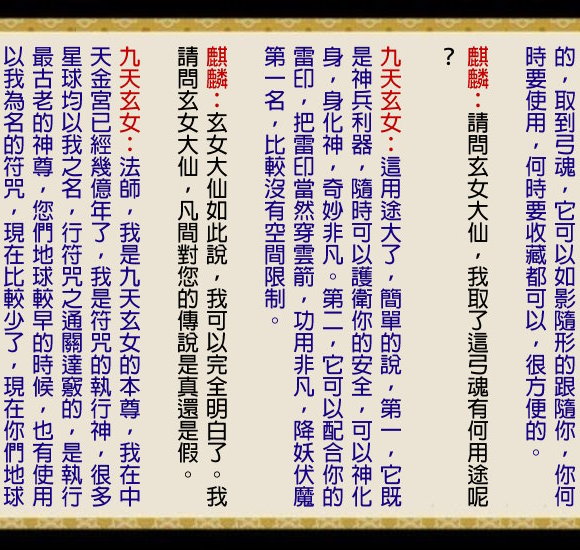 的，取到弓魂，它可以如影隨形的跟隨你，你何
時要使用，何時要收藏都可以，很方便的。
麒麟：請問玄女大仙，我取了這弓魂有何用途呢
？
九天玄女：這用途大了，簡單的說，第一，它既
是神兵利器，隨時可以護衛你的安全，可以神化
身，身化神，奇妙非凡。第二，它可以配合你的
雷印，把雷印當然穿雲箭，功用非凡，降妖伏魔
第一名，比較沒有空間限制。
麒麟：玄女大仙如此說，我可以完全明白了。我
請問玄女大仙，凡間對您的傳說是真還是假。
九天玄女：法師，我是九天玄女的本尊，我在中
天金宮已經幾億年了，我是符咒的執行神，很多
星球均以我之名，行符咒之通關達竅的，是執行
最古老的神尊，您們地球較早的時候，也有使用
以我為名的符咒，現在比較少了，現在你們地球